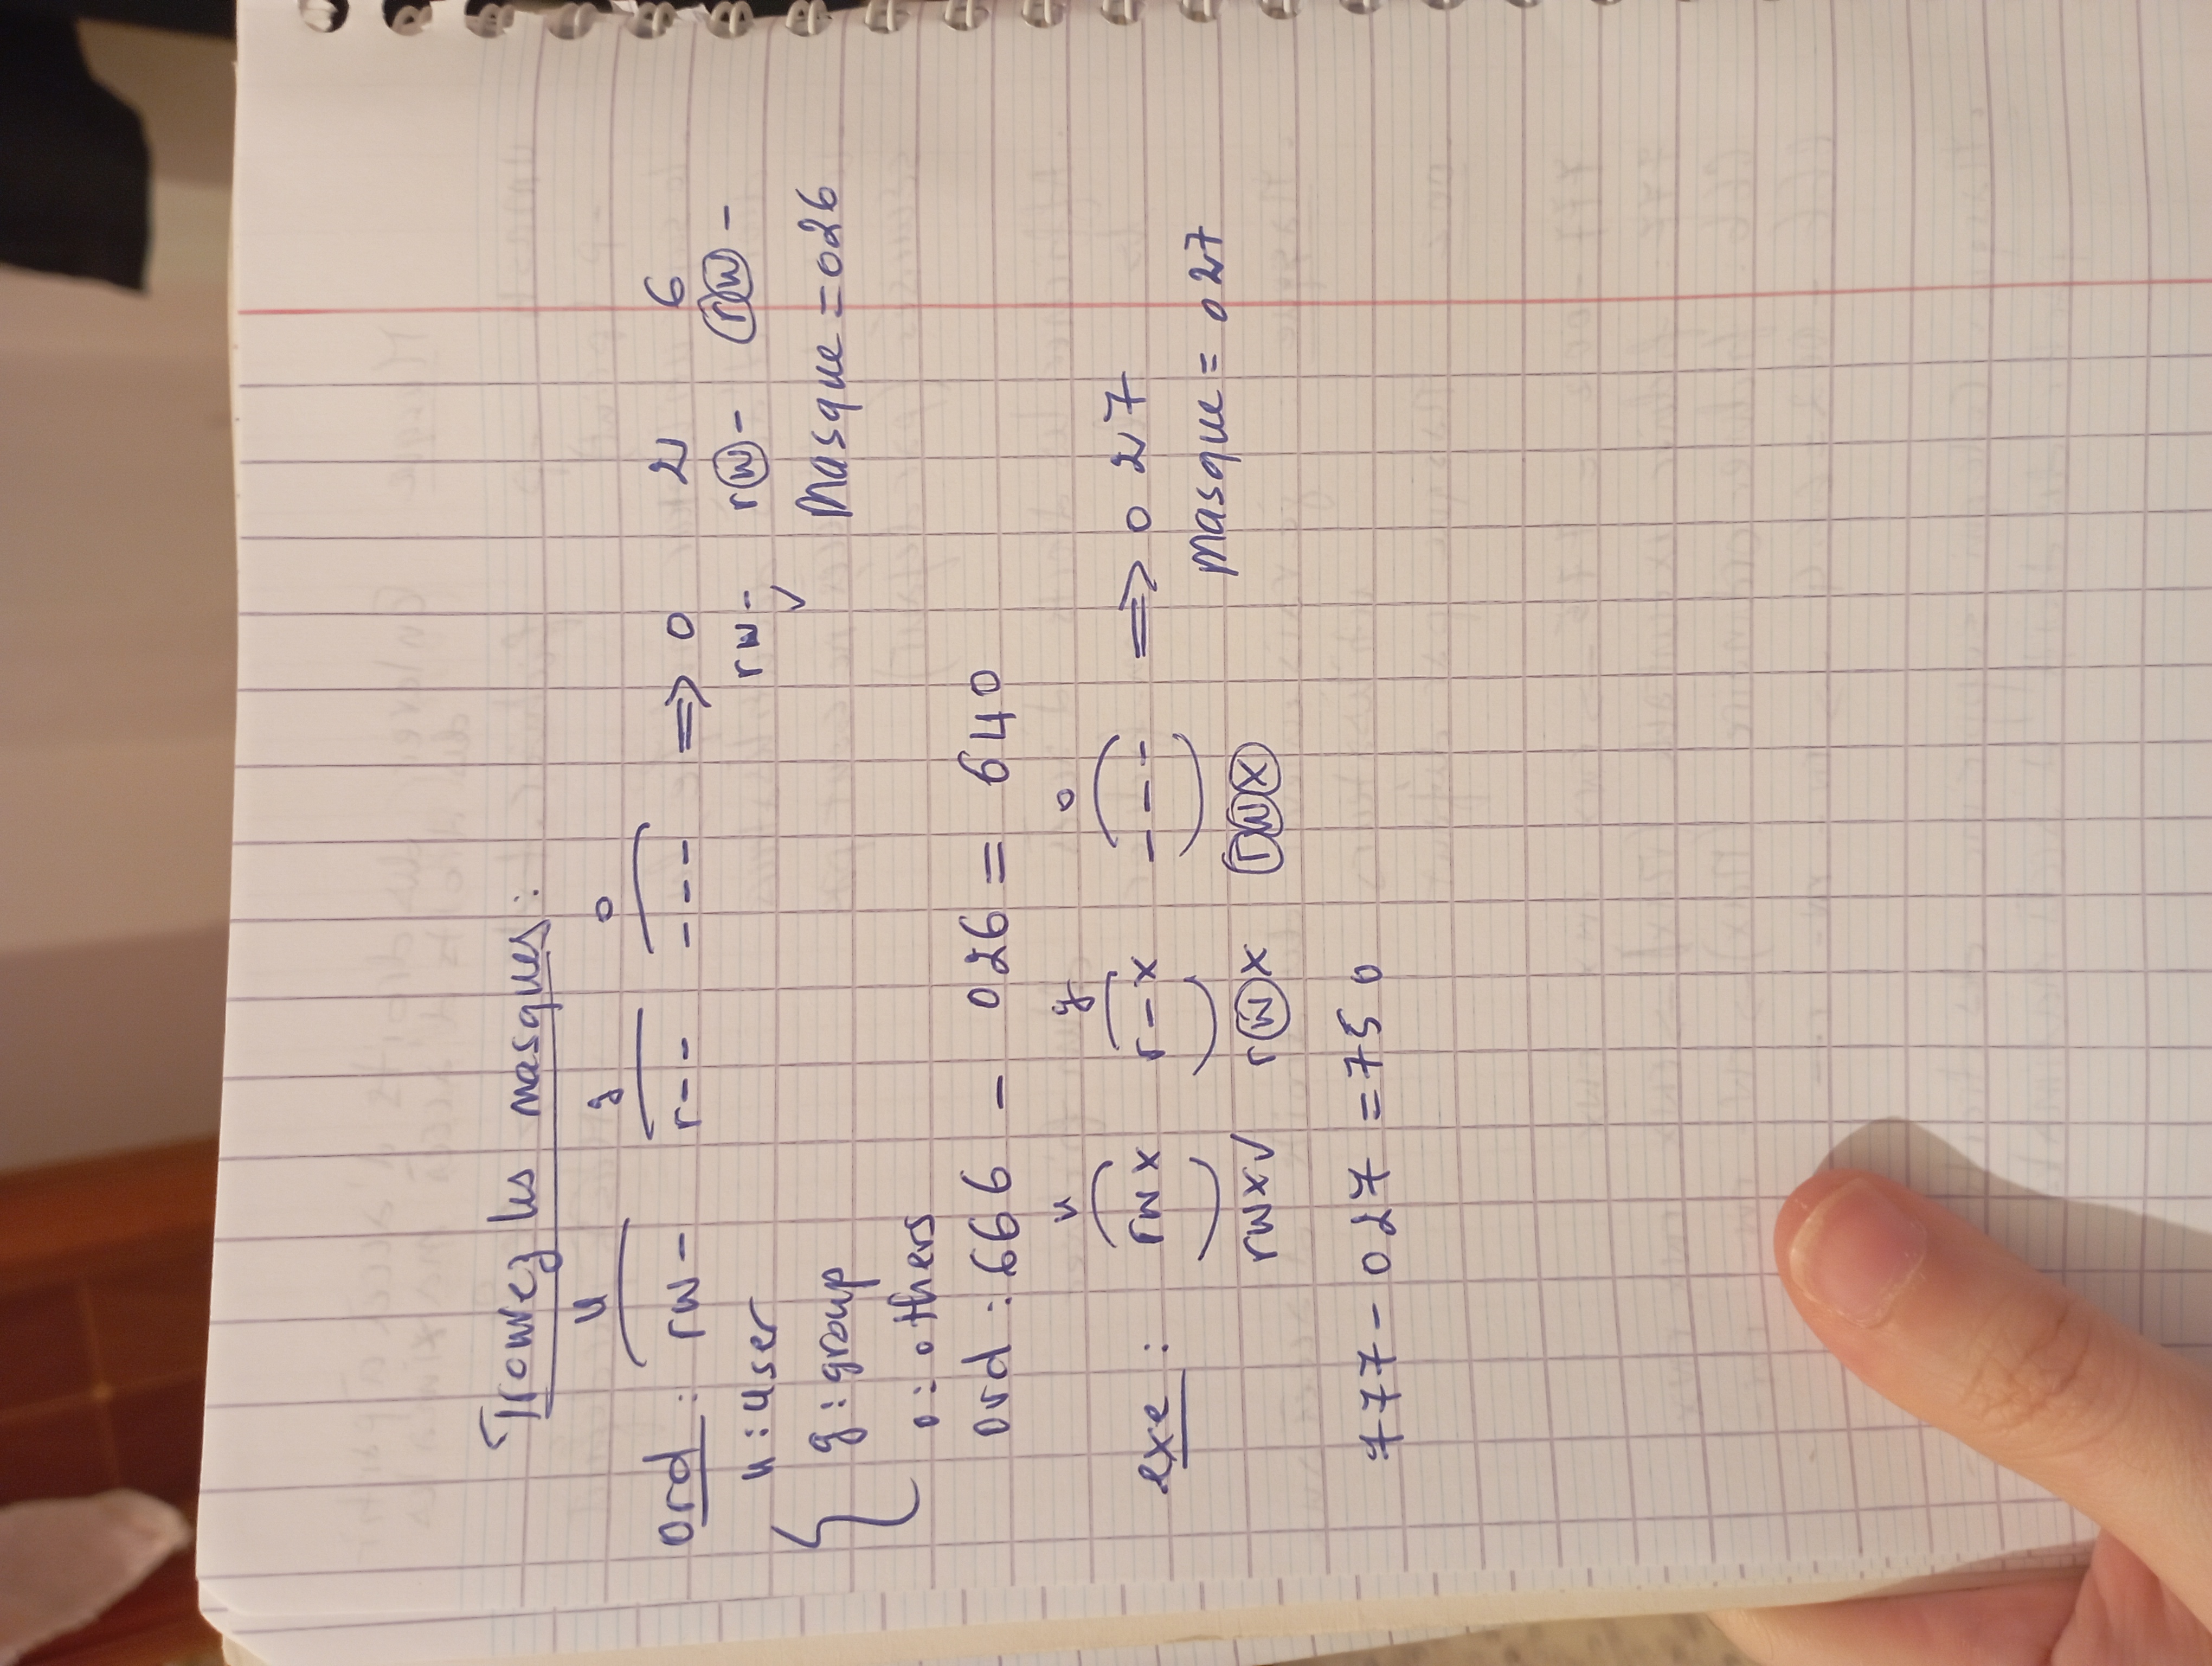 Trouvez les masques :
u g o
ord : rw- r-- --- ⟹ 0 2 6
rw- rw- rw-
✓
u : user
g : group
o : others
Masque = 026
ord : 666 - 026 = 640
u g o
exe : rwx r-x --- ⟹ 0 2 7
rwx✓ rwx rwx
Masque = 027
777 - 027 = 750